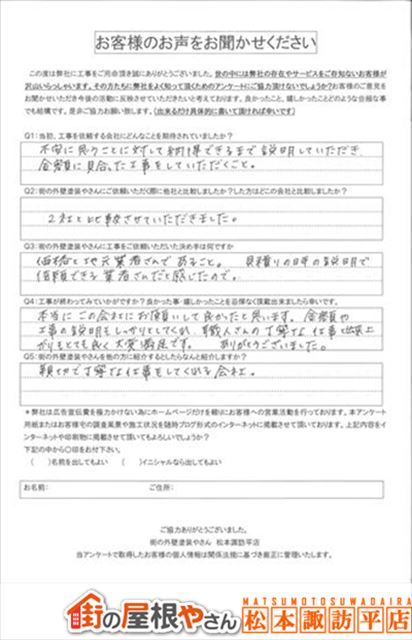 お客様のお声をお聞かせください
この度は弊社に工事をご用命頂き誠にありがとうございました。世の中には弊社の存在やサービスをご存知ないお客様が
沢山いらっしゃいます。その方たちに弊社をよく知って頂くためのアンケートにご協力頂けないでしょうか?お客様のご意見を
お聞かせいただき今後の活動に反映させていただきたいと考えております。良かったこと、嬉しかったことどのような些細な事
でも結構です。是非ご協力お願い致します。(出来るだけ具体的に書いて頂ければ幸いです)
Q1:当初、工事を依頼する会社にどんなことを期待されていましたか?
不安に思うことに対して納得できるまで説明していただき、
金額に見合った工事をしていただくこと。
Q2:街の外壁塗装やさんにご依頼いただく際に他社と比較しましたか?した方はどこの会社と比較しましたか?
2社と比較させていただきました。
Q3:街の外壁塗装やさんに工事をご依頼いただいた決め手は何ですか
価格と地元業者さんであること。 見積りの時の説明で
信頼できる業者さんだと感じたので。
Q4:工事が終わってみていかがですか?良かった事・嬉しかったことを忌憚なく頂戴出来ましたら幸いです。
本当にこの会社にお願いして良かったと思います。金額や
工事の説明もしっかりとしてくれ、職人さんの丁寧な仕事と出来上
がりもとても良く大変満足です。 ありがとうございました。
Q5:街の外壁塗装やさんを他の方に紹介するとしたらなんと紹介しますか?
親切で丁寧な仕事をしてくれる会社。
*弊社は広告宣伝費を極力かけない為にホームページだけを頼りにお客様への営業活動を行っております。本アンケート
用紙またはお客様宅の調査風景や施工状況を随時ブログ形式のインターネットに掲載させて頂いております。上記内容をイ
ンターネットや印刷物に掲載させて頂いてもよろしいでしょうか?
下記の中から〇印をお付下さい。
( )名前を出してもよい ( )イニシャルなら出してもよい
お名前: ご住所:
ご協力ありがとうございました。
街の外壁塗装やさん 松本諏訪平店
当アンケートで取得したお客様の個人情報は関係法規に基づき厳正に管理いたします。
街の屋根やさん
MATSUMOTOSUWADAIRA
松本諏訪平店